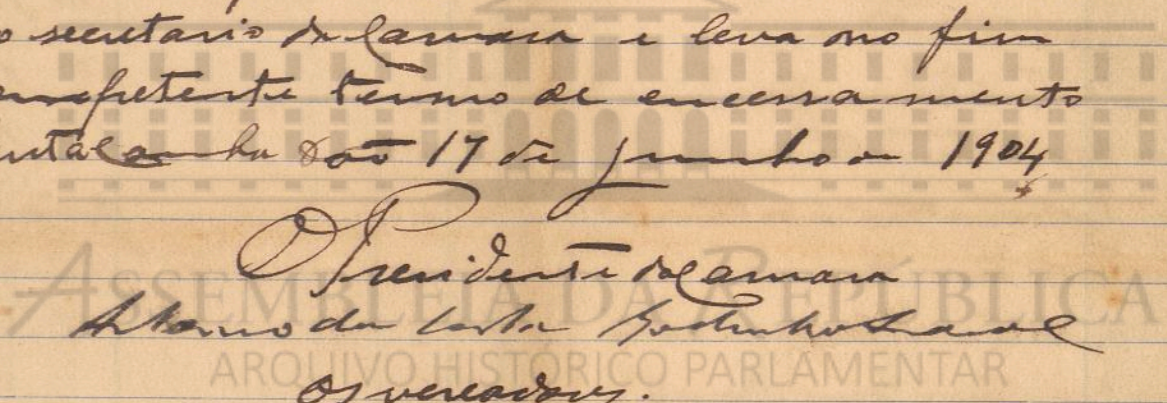 o secretario da Camara e leva no fim
competente termo de encerramento
17 de junho de 1904
O Presidente da Camara
Antonio da Costa
Os vereadores.
ASSEMBLEIA DA REPÚBLICA
ARQUIVO HISTÓRICO PARLAMENTAR